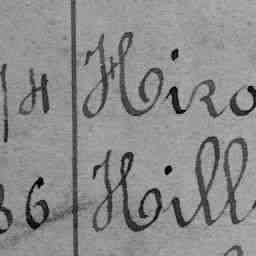 74 Hiro
36 Hill